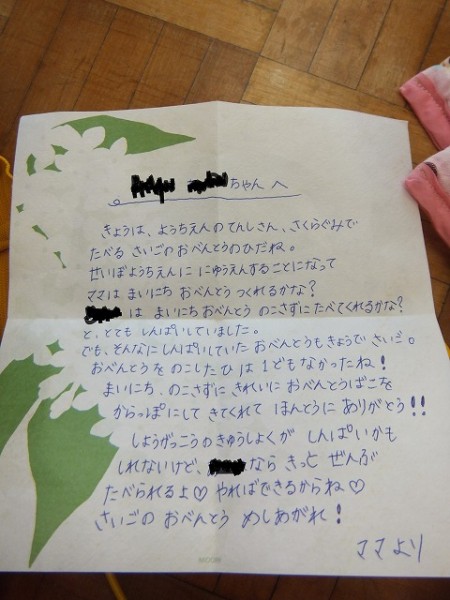 ちゃんへ
きょうは、ようちえんのてんしさん、さくらぐみで
たべる さいごのおべんとうのひだね。
せいぼようちえんに にゅうえんすることになって
ママは まいにち おべんとう つくれるかな?
は まいにち おべんとう のこさずに たべてくれるかな?
と、とても しんぱいしていました。
でも、そんなに しんぱいしていた おべんとうも きょうで さいご。
おべんとうを のこしたひは 1どもなかったね!
まいにち、のこさずに きれいに おべんとうばこを
からっぽにして きてくれて ほんとうに ありがとう!!
しょうがっこうの きゅうしょくが しんぱいかも
しれないけど、なら きっと ぜんぶ
たべられるよ♡ やればできるからね♡
さいごの おべんとう めしあがれ!
ママより